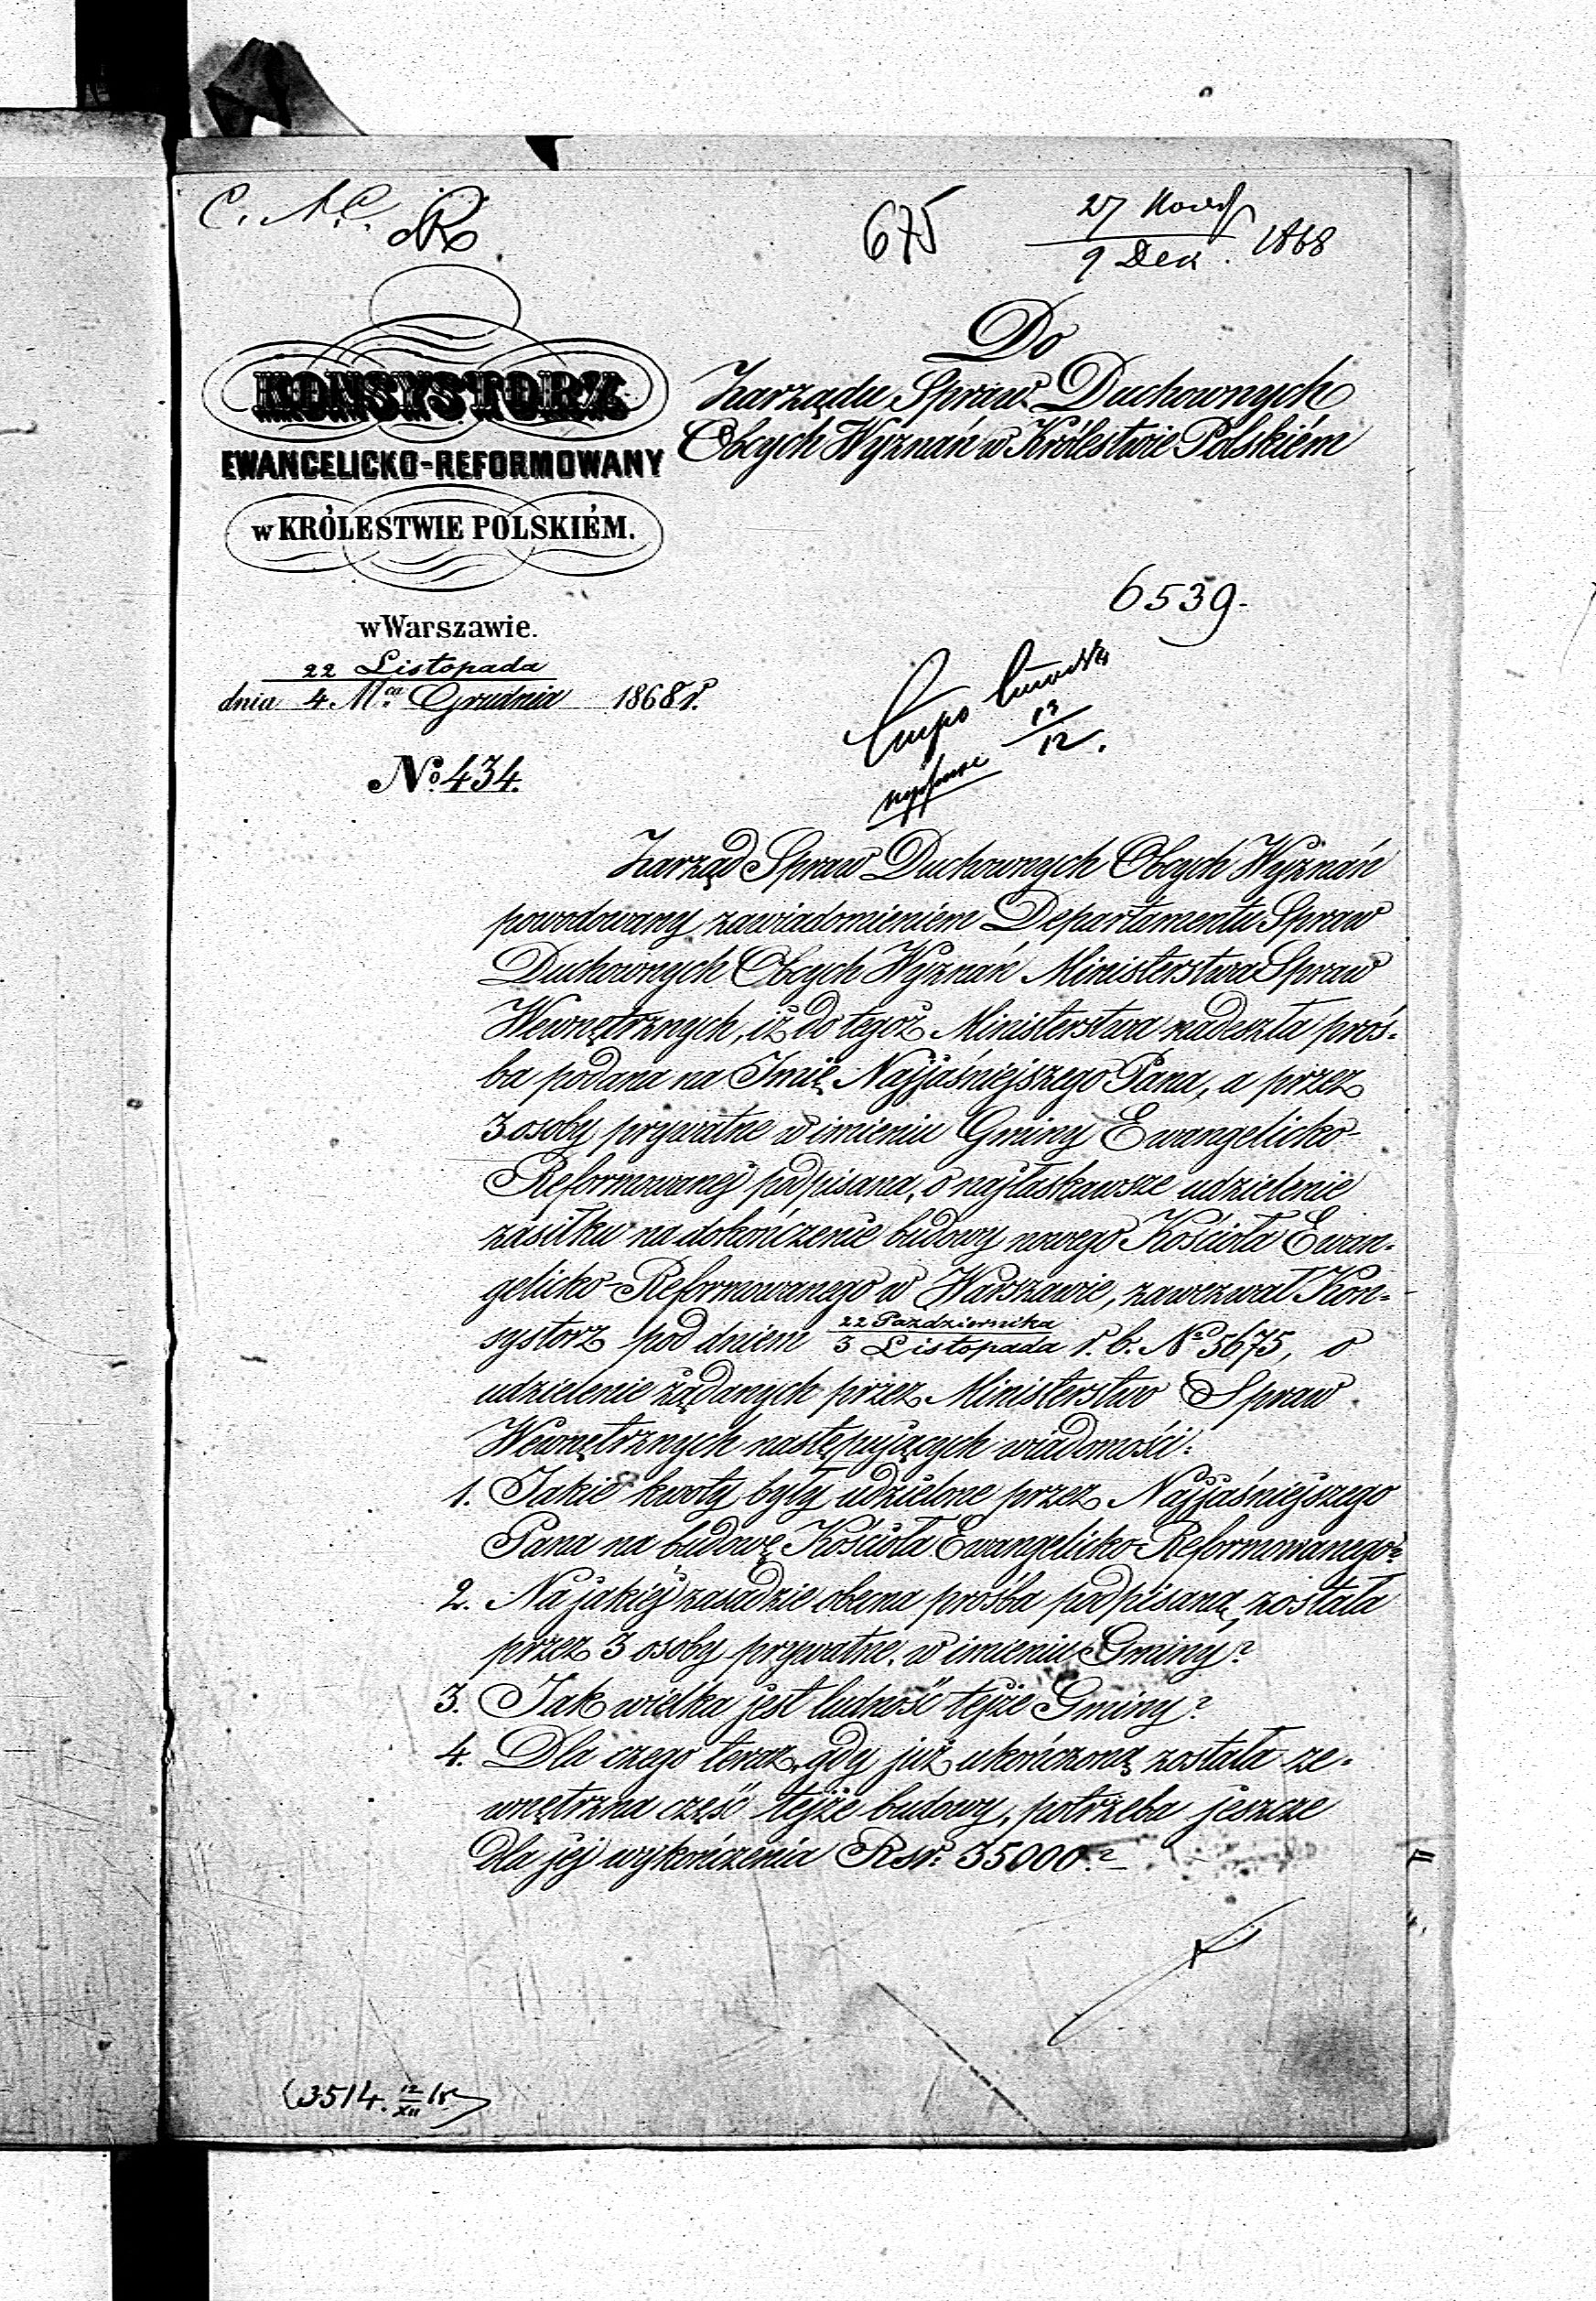 675
27 Nowb
9 Dek. 1868
KONSYSTORZ
EWANGELICKO-REFORMOWANY
w KRÓLESTWIE POLSKIÉM.
w Warszawie.
22 Listopada
dnia 4 Mca Grudnia 1868 r.
No 434.
Do
Zarządu Spraw Duchownych
Obcych Wyznań w Królestwie Polskiém
6539.
13
12.
Zarząd Spraw Duchownych Obcych Wyznań
powodowany zawiadomieniem Departamentu Spraw
Duchownych Obcych Wyznań Ministerstwa Spraw
Wewnętrznych, iż do tegoż Ministerstwa nadeszła proś-
ba podana na Imię Najjaśniejszego Pana, a przez
3 osoby prywatne w imieniu Gminy Ewangelicko-
Reformowanéj podpisana, o najłaskawsze udzielenie
zasiłku na dokończenie budowy nowego Kościoła Ewan-
gelicko-Reformowanego w Warszawie, zawezwał Kon-
systorz pod dniem 22 Października / 3 Listopada r. b. No 5675, o
udzielenie żądanych przez Ministerstwo Spraw
Wewnętrznych następujących wiadomości:
1. Jakie kwoty były udzielone przez Najjaśniejszego
Pana na budowę Kościoła Ewangelicko-Reformowanego?
2. Na jakiéj zasadzie obecna prośba podpisaną została
przez 3 osoby prywatne, w imieniu Gminy?
3. Jak wielka jest ludność tejże Gminy?
4. Dla czego teraz, gdy już ukończoną została ze-
wnętrzna część tejże budowy, potrzeba jeszcze
dla jéj wykończenia Rsr: 35000.?
(3514. 12/XII